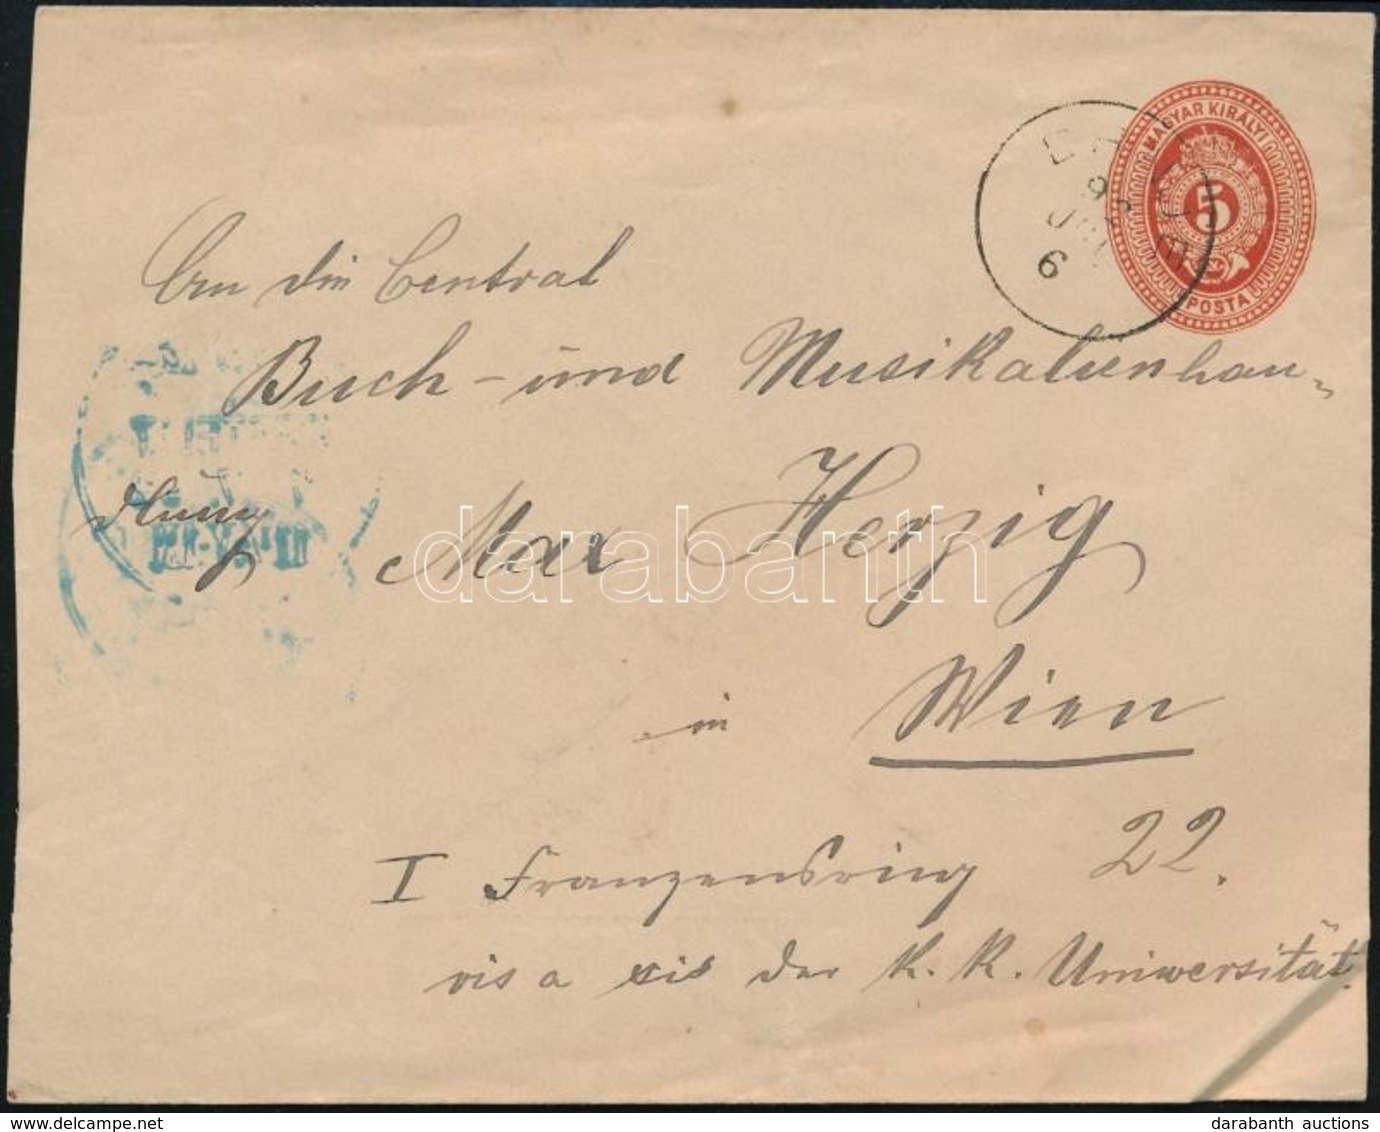 MAGYAR KIRÁLYI
5
POSTA
6
An die Central
Buch - und Musikalienhan-
dlung Max Herzig
in Wien
I Franzensring 22.
vis a vis der k. k. Universität
darabanth
darabanth auctions